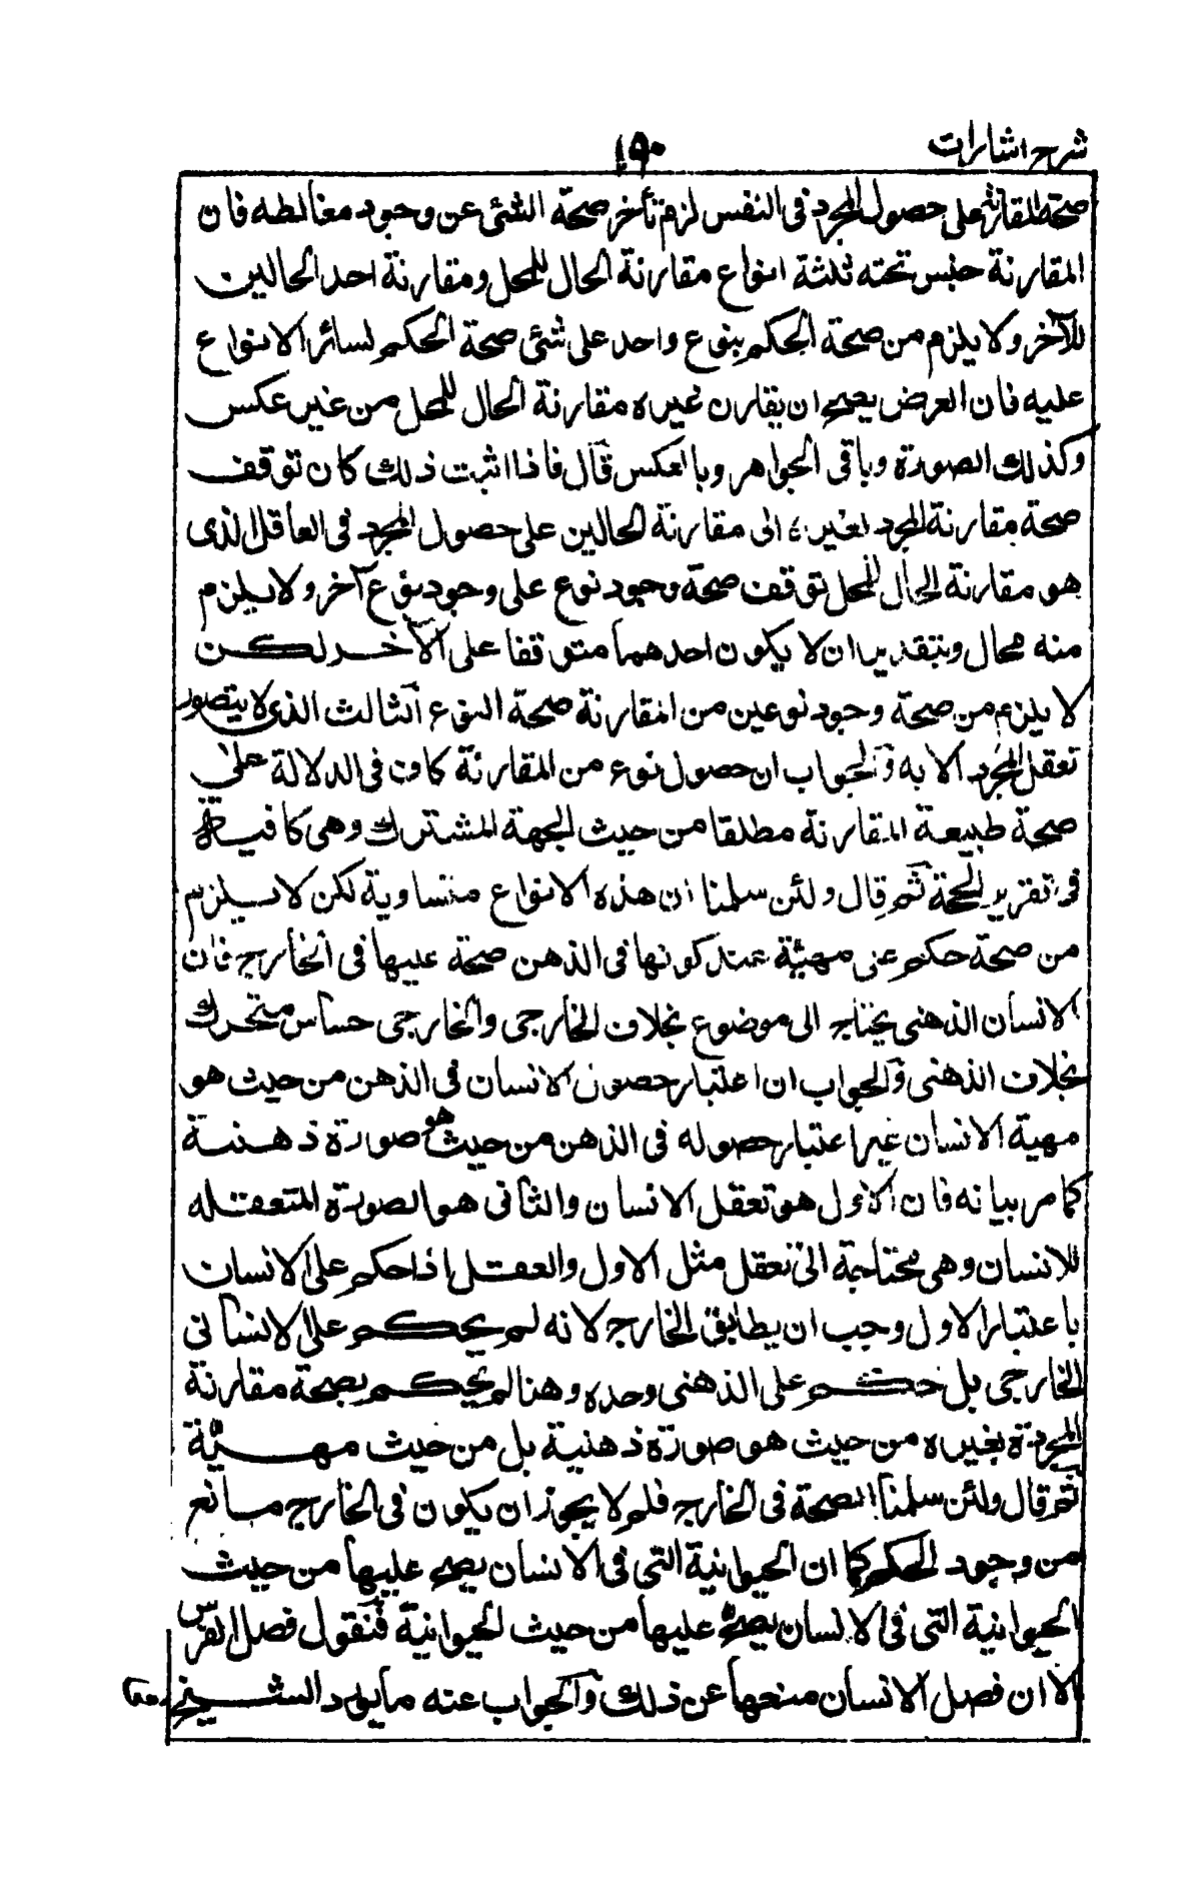 شرح اشارات
١٩٠
صحة المقارنة على حصول المجرد فى النفس لزم تأخر صحة الشئ عن وجود مغالطه فان
المقارنة جنس تحته ثلثة انواع مقارنة الحال للمحل ومقارنة احد الحالين
للآخر ولا يلزم من صحة الحكم بنوع واحد على شئ صحة الحكم لسائر الانواع
عليه فان العرض يصح ان يقارن غيره مقارنة الحال للمحل من غير عكس
وكذلك الصورة وباقى الجواهر وبالعكس قال فاذا اثبت ذلك كان توقف
صحة مقارنة المجرد لغيره الى مقارنة الحالين على حصول المجرد فى العاقل الذى
هو مقارنة الحال للمحل توقف صحة وجود نوع على وجود نوع آخر ولا يلزم
منه محال وبتقدير ان لا يكون احدهما متوقفا على الآخر لكن
لا يلزم من صحة وجود نوعين من المقارنة صحة النوع الثالث الذى لا يتصور
تعقل المجرد الا به والجواب ان حصول نوع من المقارنة كاف فى الدلالة على
صحة طبيعة المقارنة مطلقا من حيث الجهة المشترك وهى كافية
فى تقرير الحجة ثم قال ولئن سلمنا ان هذه الانواع متساوية لكن لا يلزم
من صحة حكم على مهيّة عند كونها فى الذهن صحة عليها فى الخارج فان
الانسان الذهنى يحتاج الى موضوع بخلاف الخارجى والخارجى حساس متحرك
بخلاف الذهنى والجواب ان اعتبار حصول الانسان فى الذهن من حيث هو
مهية الانسان غير اعتبار حصوله فى الذهن من حيث هو صورة ذهنية
كما مر بيانه فان الاول هو تعقل الانسان والثانى هو الصورة المتعقله
للانسان وهى محتاجة الى تعقل مثل الاول والعقل اذا حكم على الانسان
باعتبار الاول وجب ان يطابق الخارج لانه لم يحكم على الانسانى
الخارجى بل حكم على الذهنى وحده وهنا لم يحكم بصحة مقارنة
المجردة بغيره من حيث هو صورة ذهنية بل من حيث مهيّة
ثم قال ولئن سلمنا الصحة فى الخارج فلم لا يجوز ان يكون فى الخارج مانع
من وجود الحكم كما ان الحيوانية التى فى الانسان يصح عليها من حيث
الحيوانية التى فى الانسان يصح عليها من حيث الحيوانية فنقول فصل الفرس
الا ان فصل الانسان منعها عن ذلك والجواب عنه ما يورد الشيخ